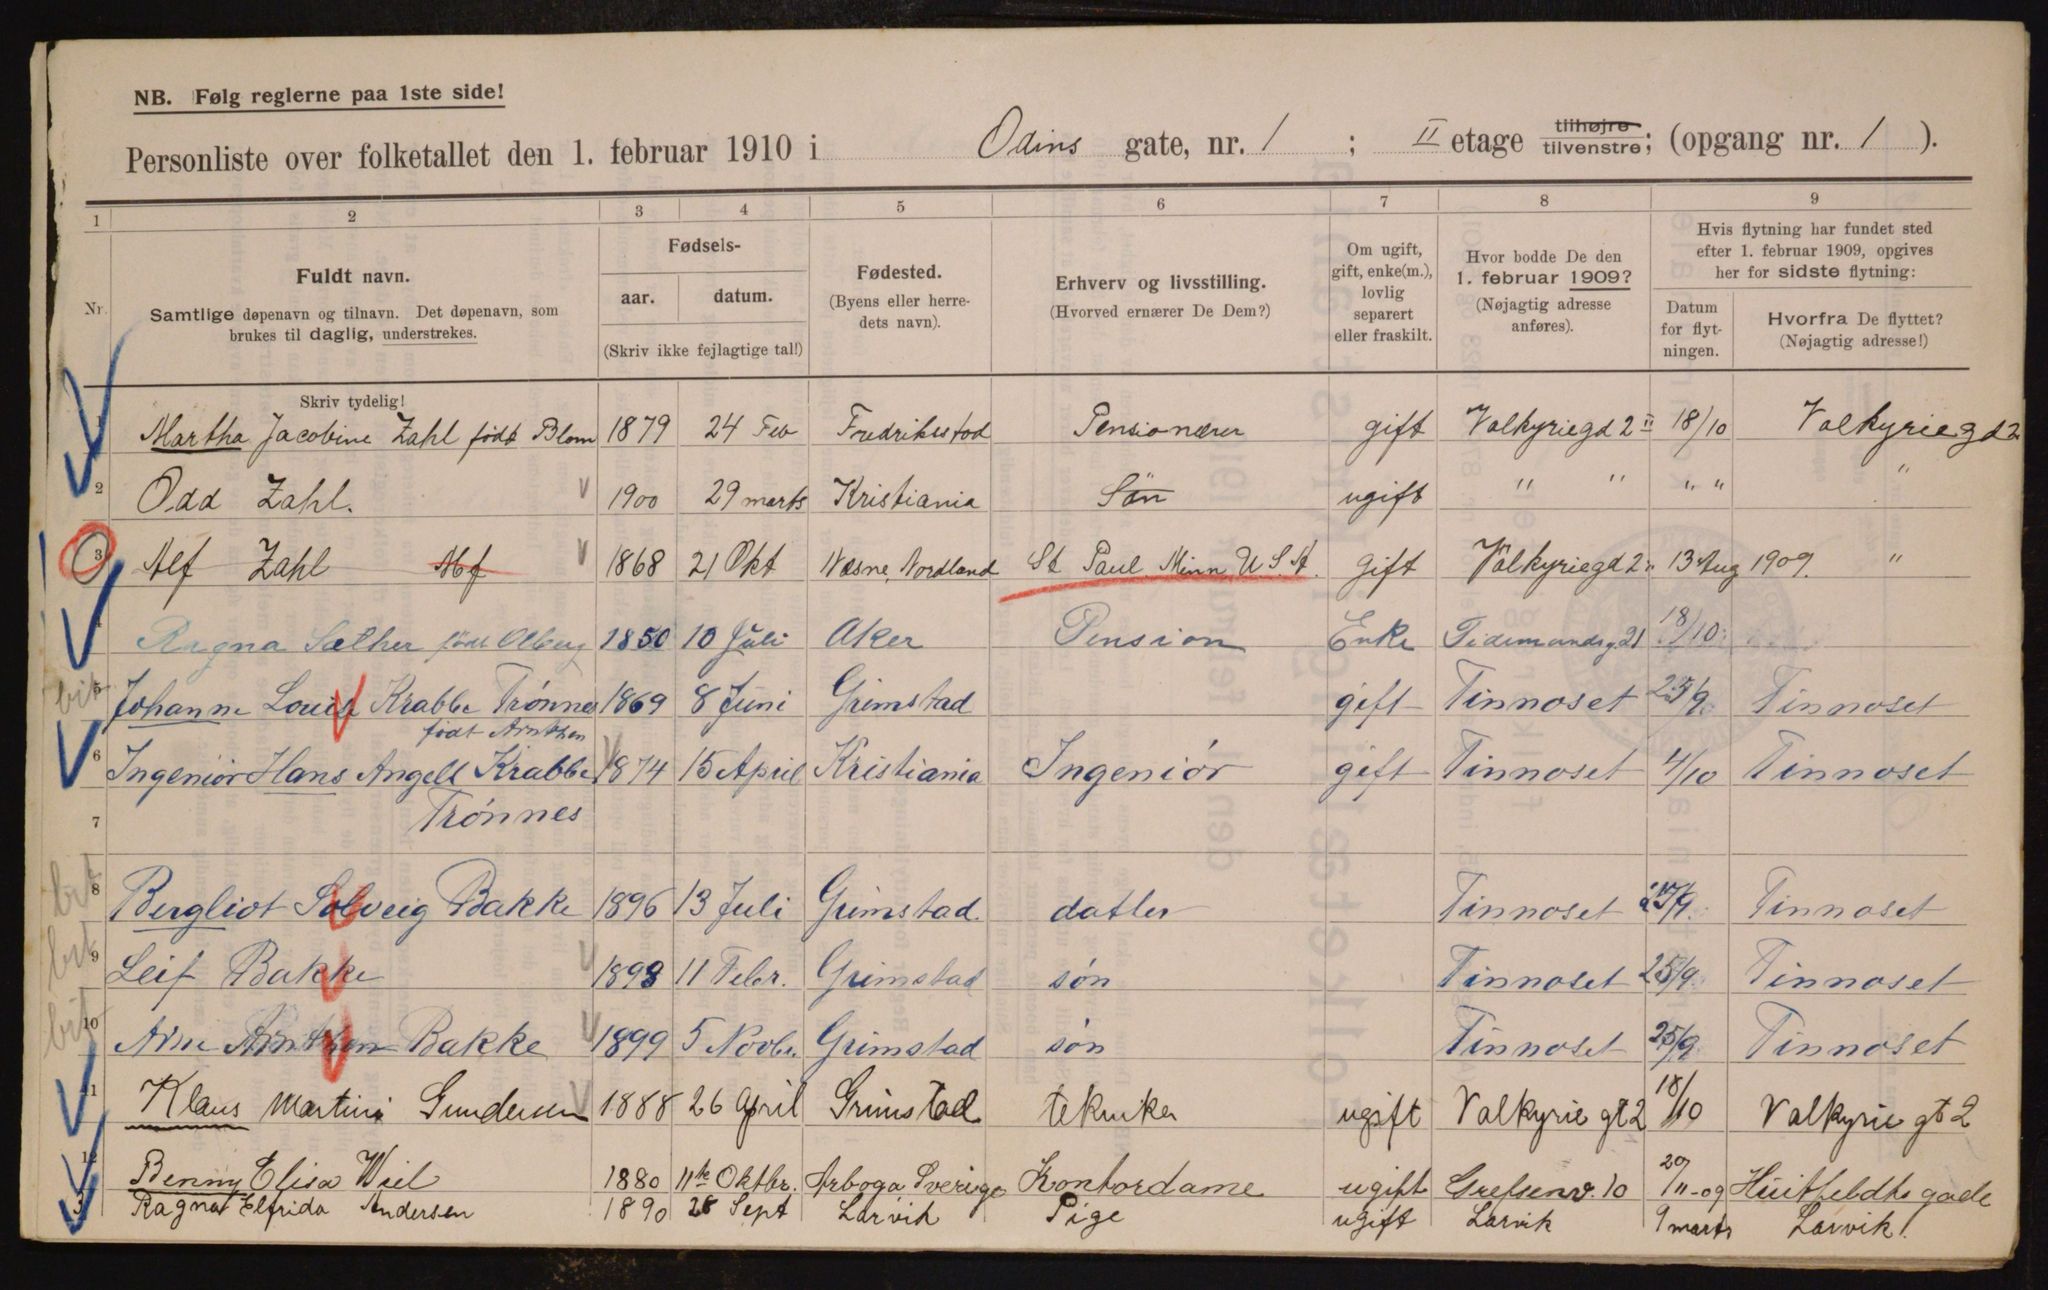 NB. Følg reglerne paa 1ste side!
Personliste over folketallet den 1. februar 1910 i Odins gate, nr. 1 ; II etage tilhøjre tilvenstre; (opgang nr. 1 ).
1 2 3 4 5 6 7 8 9
Nr. Fuldt navn. Samtlige døpenavn og tilnavn. Det døpenavn, som brukes til daglig, understrekes.
Fødsels- aar. datum. (Skriv ikke fejlagtige tal!)
Fødested. (Byens eller herredets navn).
Erhverv og livsstilling. (Hvorved ernærer De Dem?)
Om ugift, gift, enke(m.), lovlig separert eller fraskilt.
Hvor bodde De den 1. februar 1909? (Nøjagtig adresse anføres).
Hvis flytning har fundet sted efter 1. februar 1909, opgives her for sidste flytning:
Datum for flytningen. Hvorfra De flyttet? (Nøjagtig adresse!)
Skriv tydelig!
1 Martha Jacobine Zahl født Blom 1879 24 Feb Fredriksstad Pensionærer gift Valkyriegd 2 II 18/10 Valkyriegd 2
2 Odd Zahl. 1900 29 marts Kristiania Søn ugift " " " " "
3 Alf Zahl Alf 1868 21 Okt Næsne, Nordland St Paul. Minn. U.S.A. gift Valkyriegd 2 " 13 Aug 1909. "
4 Ragna Sæther født Olberg 1850 10 Juli Aker Pension Enke Tidemandsg 21 18/10
bit 5 Johanne Louise Krabbe Trønnes 1869 8 Juni Grimstad gift Tinnoset 25/9. Tinnoset
født Arntzen
6 Ingeniør Hans Angell Krabbe 1874 15 April Kristiania Ingeniør gift Tinnoset 4/10 Tinnoset
7 Trønnes
bit 8 Bergliot Solveig Bakke 1896 13 Juli Grimstad. datter Tinnoset 25/9. Tinnoset
bit 9 Leif Bakke 1898 11 Febr. Grimstad søn Tinnoset 25/9. Tinnoset
bit 10 Arne Arntzen Bakke 1899 5 Novbr. Grimstad søn Tinnoset 25/9 Tinnoset
11 Klaus Martini Gundersen 1888 26 April Grimstad tekniker ugift Valkyrie gt 2 18/10 Valkyrie gt 2
12 Benny Elisa Wiel 1880 11te Oktbr. Arboga Sverige Kontordame ugift Grefsenv. 10 20/11-09 Huitfeldts gade
13 Ragna Elfrida Andersen 1890 28 Sept Larvik Pige ugift Larvik 9 marts Larvik.